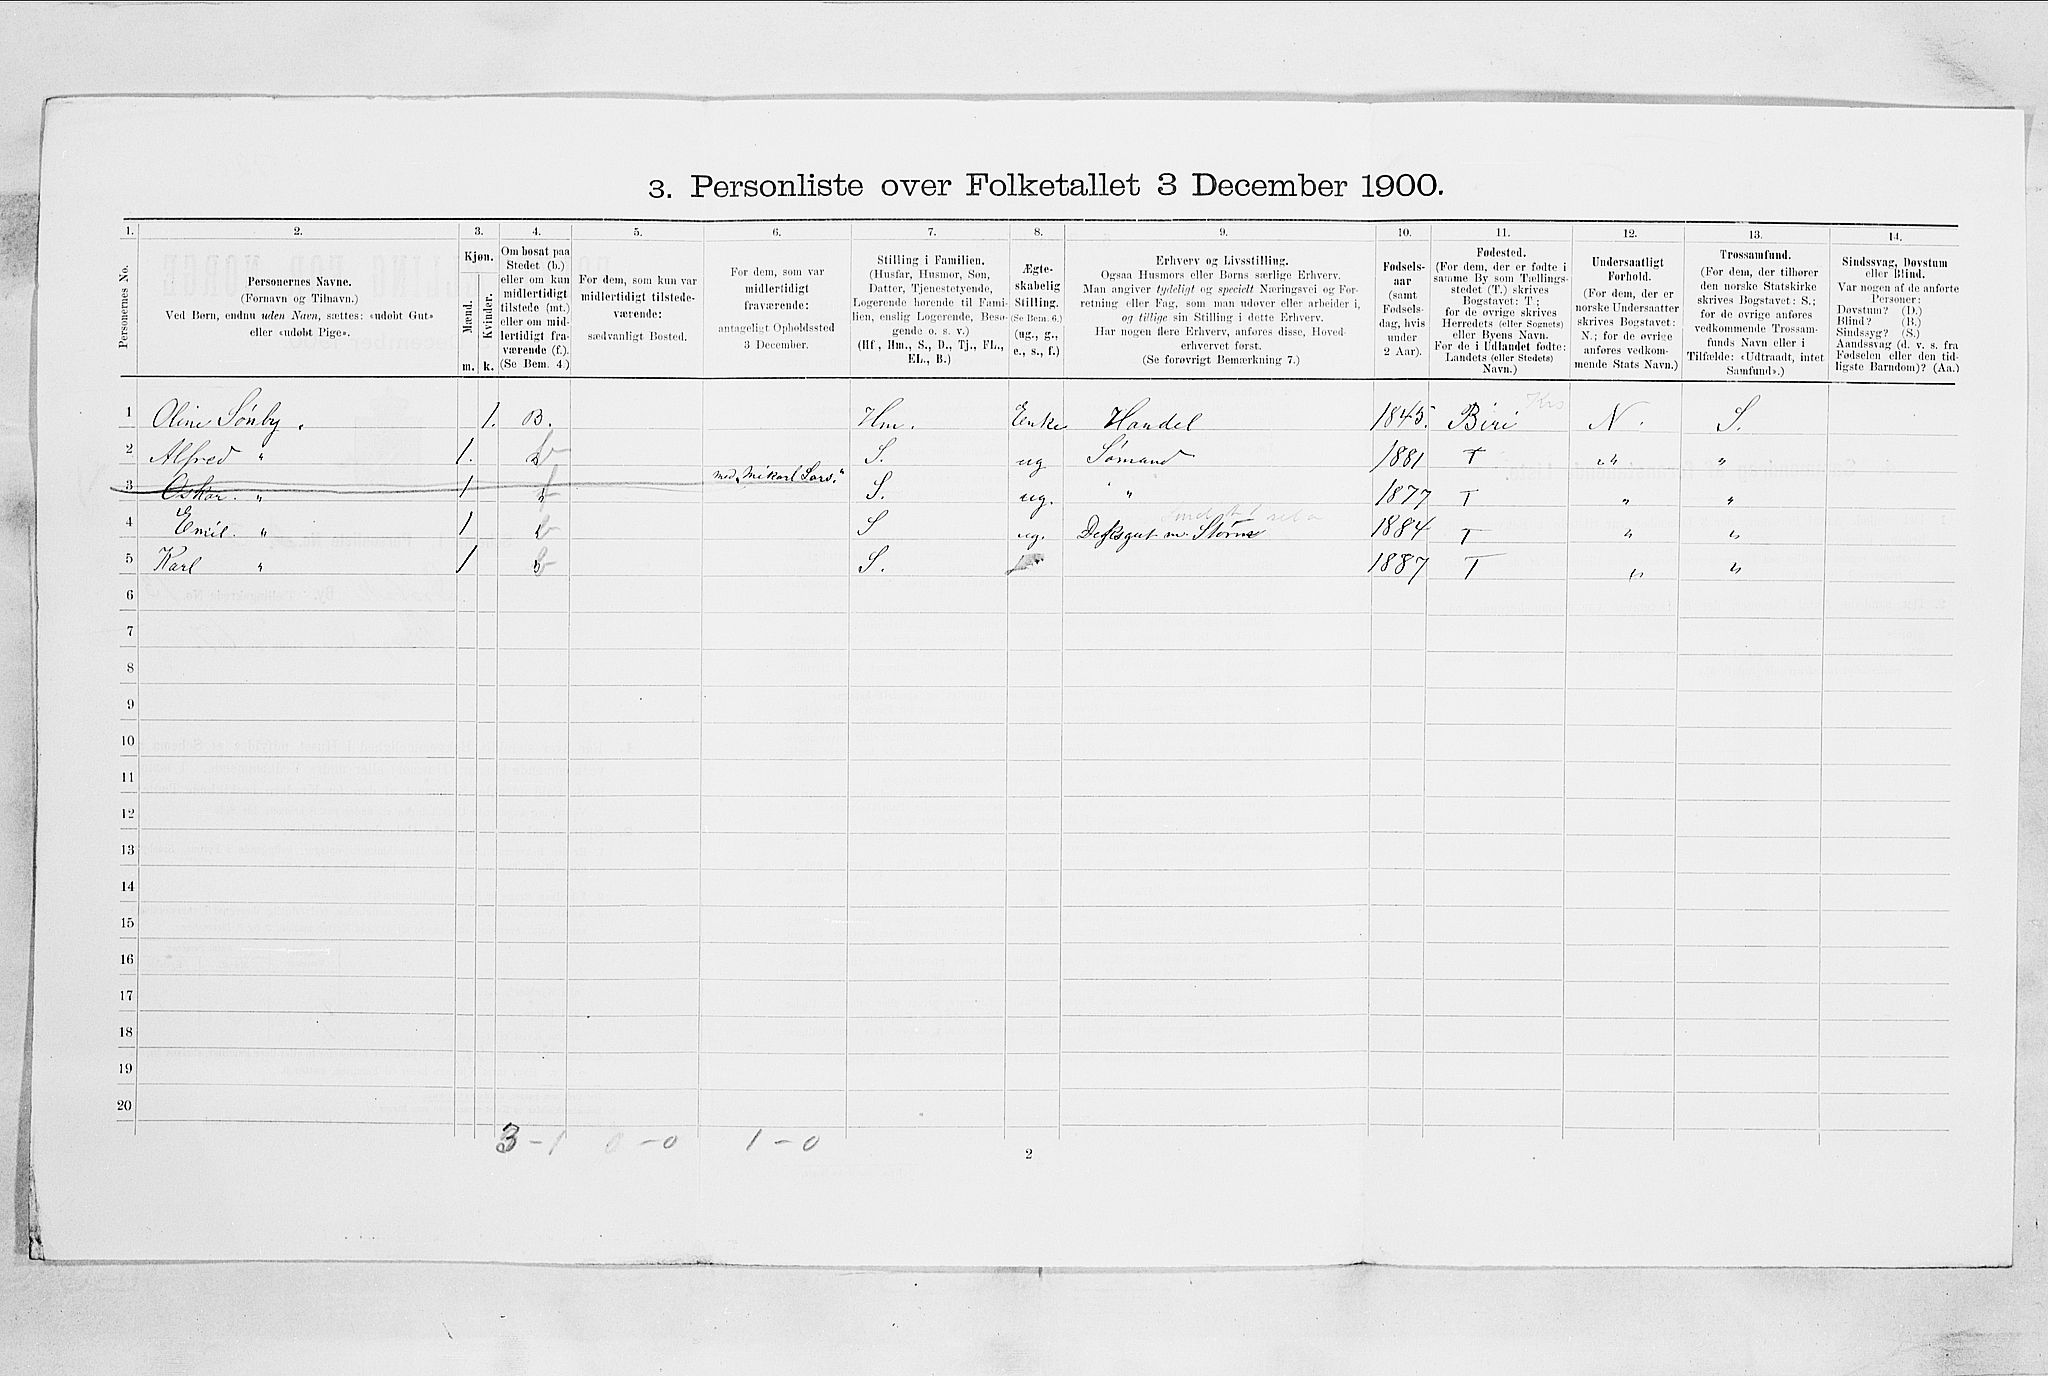 3. Personliste over Folketallet 3 December 1900.
1. 2. 3. 4. 5. 6. 7. 8. 9. 10. 11. 12. 13. 14.
Personernes No.
Personernes Navne.
(Fornavn og Tilnavn.)
Ved Børn, endnu uden Navn, sættes: «udøbt Gut»
eller «udøbt Pige».
Kjøn.
Mænd.
Kvinder.
m. k.
Om bosat paa
Stedet (b.)
eller om kun
midlertidigt
tilstede (mt.)
eller om mid-
lertidigt fra-
værende (f.)
(Se Bem. 4.)
For dem, som kun var
midlertidigt tilstede-
værende:
sædvanligt Bosted.
For dem, som var
midlertidigt
fraværende:
antageligt Opholdssted
3 December.
Stilling i Familien.
(Husfar, Husmor, Søn,
Datter, Tjenestetyende,
Logerende hørende til Fami-
lien, enslig Logerende, Besø-
gende o. s. v.)
(Hf., Hm., S., D., Tj., FL.,
EL., B.)
Ægte-
skabelig
Stilling.
(Se Bem. 6.)
(ug., g.,
e., s., f.)
Erhverv og Livsstilling.
Ogsaa Husmors eller Børns særlige Erhverv.
Man angiver tydeligt og specielt Næringsvei og For-
retning eller Fag, som man udøver eller arbeider i,
og tillige sin Stilling i dette Erhverv.
Har nogen flere Erhverv, anføres disse, Hoved-
erhvervet først.
(Se forøvrigt Bemærkning 7.)
Fødsels-
aar
(samt
Fødsels-
dag, hvis
under
2 Aar).
Fødested.
(For dem, der er fødte i
samme By som Tællings-
stedet (T.) skrives
Bogstavet: T;
for de øvrige skrives
Herredets (eller Sognets)
eller Byens Navn.
For de i Udlandet fødte:
Landets (eller Stedets)
Navn.)
Undersaatligt
Forhold.
(For dem, der er
norske Undersaatter
skrives Bogstavet:
N.; for de øvrige
anføres vedkom-
mende Stats Navn.)
Trossamfund.
(For dem, der tilhører
den norske Statskirke
skrives Bogstavet: S.;
for de øvrige anføres
vedkommende Trossam-
funds Navn eller i
Tilfælde: «Udtraadt, intet
Samfund».)
Sindssvag, Døvstum
eller Blind.
Var nogen af de anførte
Personer:
Døvstum? (D.)
Blind? (B.)
Sindssyg? (S.)
Aandssvag (d. v. s. fra
Fødselen eller den tid-
ligste Barndom)? (Aa.)
1 Oline Sönby. 1. B. Hm. Enke Handel 1845. Biri Krs N. S.
2 Alfred " 1. b S. ug Sømand 1881 T " "
3 Oskar. " 1 f med "Mikael Sars." S. ug. " 1877 T " "
4 Emil. " 1 b S ug. Deksgut m. 1884 T " "
5 Karl " 1 b S. 1887 T " "
6
7
8
9
10
11
12
13
14
15
16
17
18
19
20
3-1 0-0 1-0
2